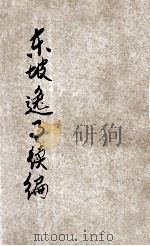 东坡逸事续编
研狗
mtoou.info